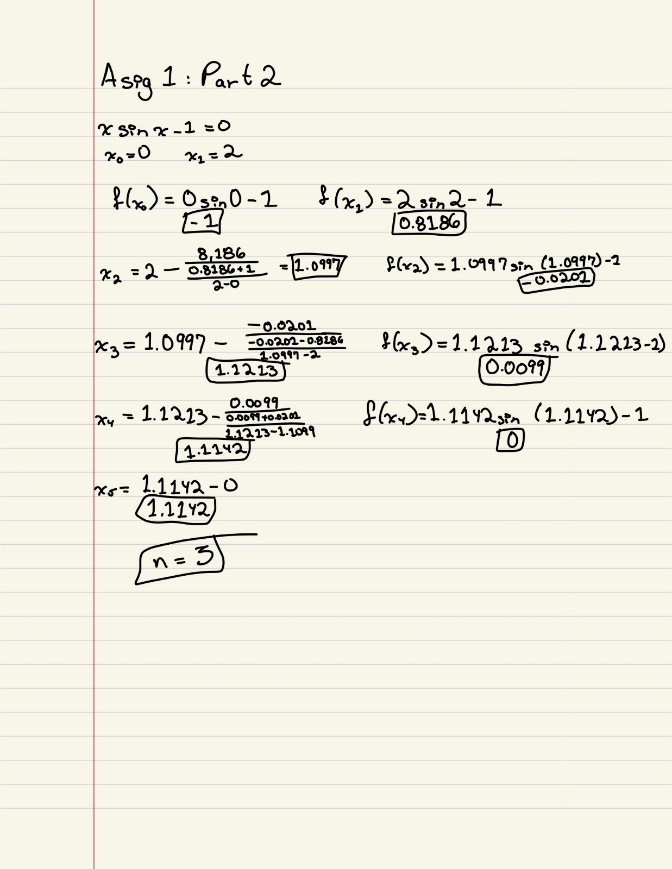 Asig 1 : Part 2
x sin x - 1 = 0
x₀=0 x₁=2
f(x₀) = 0 sin 0 - 1 f(x₁) = 2 sin 2 - 1
-1 0.8186
x₂ = 2 - 8,186 / ((0.8186+1) / (2-0)) = 1.0997 f(x₂) = 1.0997 sin (1.0997) - 1
-0.0201
x₃ = 1.0997 - (-0.0201) / ((-0.0201-0.8186) / (1.0997-2)) f(x₃) = 1.1213 sin (1.1213-1)
1.1213 0.0099
x₄ = 1.1213 - 0.0099 / ((0.0099+0.0201) / (1.1213-1.1099)) f(x₄)=1.1142 sin (1.1142) - 1
1.1142 0
x₅ = 1.1142 - 0
1.1142
n = 3